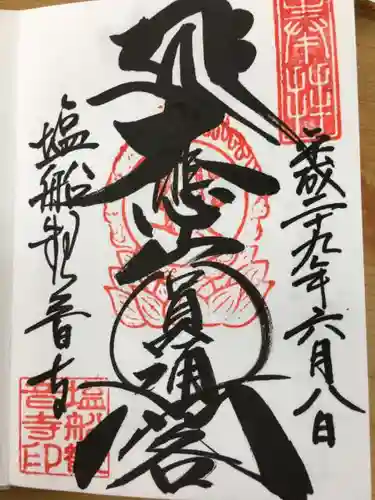 奉拝
平成二十九年六月八日
大悲山
圓通閣
塩船観音寺
塩船観音寺印